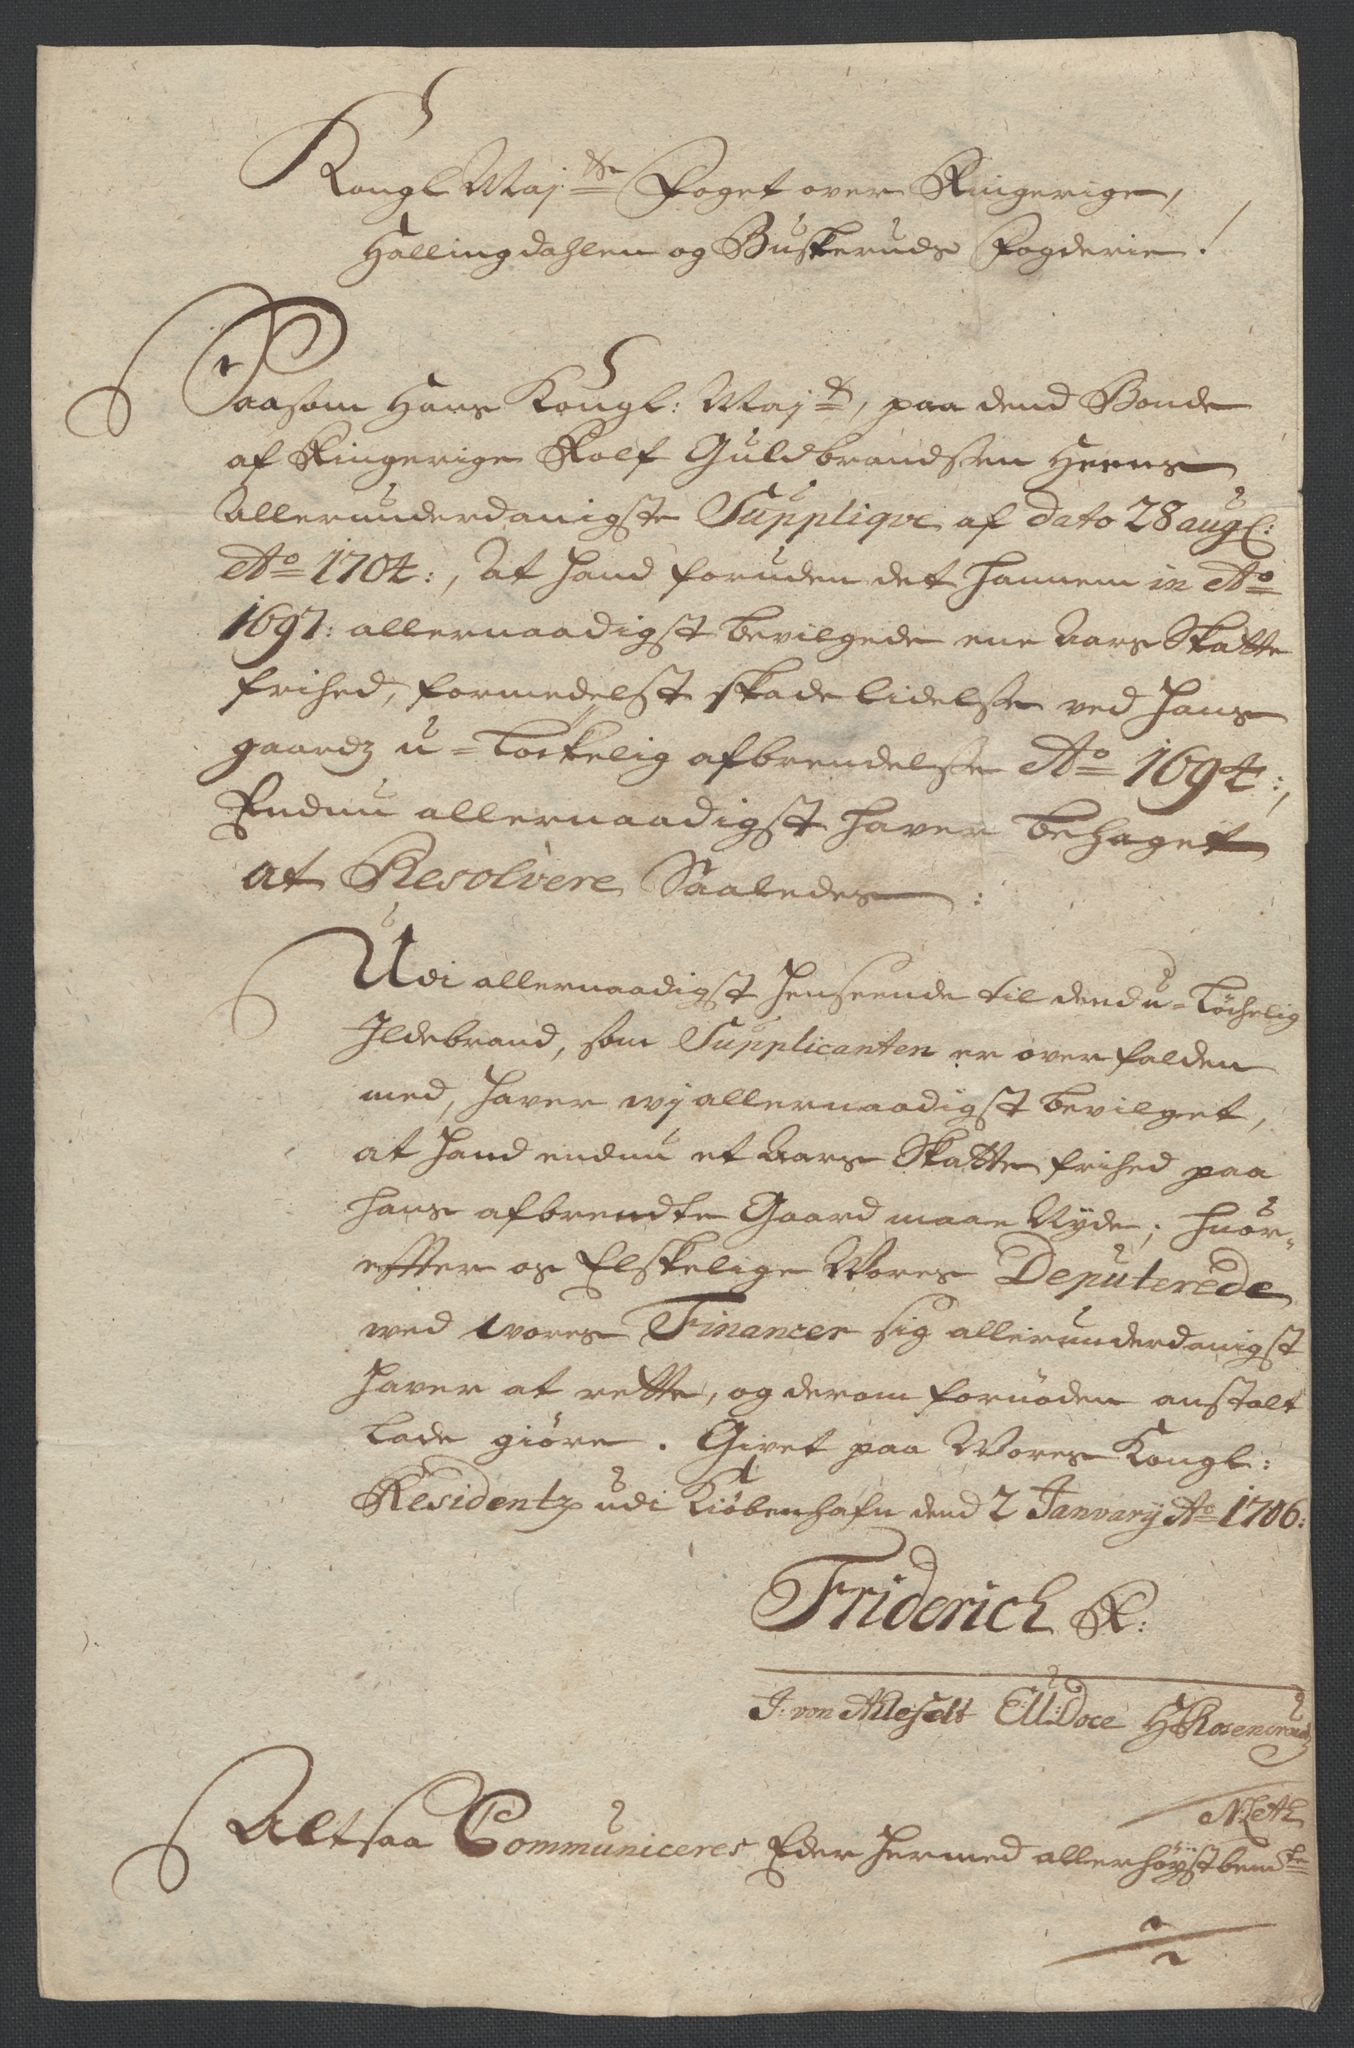 Kongl Maj:ts Foget over Ringerige,
Hallingdahlen og Buskeruds Fogderie!
Saasom Hans Kongl: Maj:ts, paa dend Bonde
af Ringerige Rolf Guldbrandssen Heens
allerunderdanigste Supplique af dato 28 aug:
Ao 1704:, At hand foruden det hannem in Ao
1697: allernaadigst bevilgede ene Aars Skatte
frihed, formedelst skade lidelse ved hans
gaardz u-løckelig afbrendelse Ao 1694:,
Endnu allernaadigst haver behaget
at Resolvere Saaledes:
Udi allernaadigst henseende til dend u-løchelig
Ildebrand, som Supplicanten er overfalden
med, haver wj allernaadigst bevilget,
at hand endnu et Aars Skatte frihed paa
hans afbrendte Gaard maae Nyde; huor-
effter os Elskelige Vores Deputerede
ved vores Financer sig allerunderdanigst
haver at rette, og derom fornøden anstalt
lade giøre. Givet paa Vores Kongl:
Residentz udi Kiøbenhafn dend 2 January Ao 1706:
Friderich R:
J: von Alefelt C: U: Doce H Rosencrantz
Altsaa Communiceres Eder hermed allerhøyst bem:te